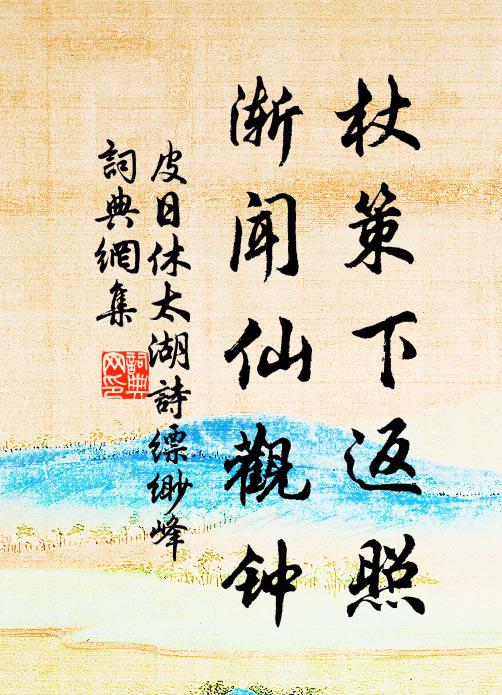 杖策下返照
渐闻仙觀钟
皮日休太湖詩缥缈峰
詞典網集
詞典网印